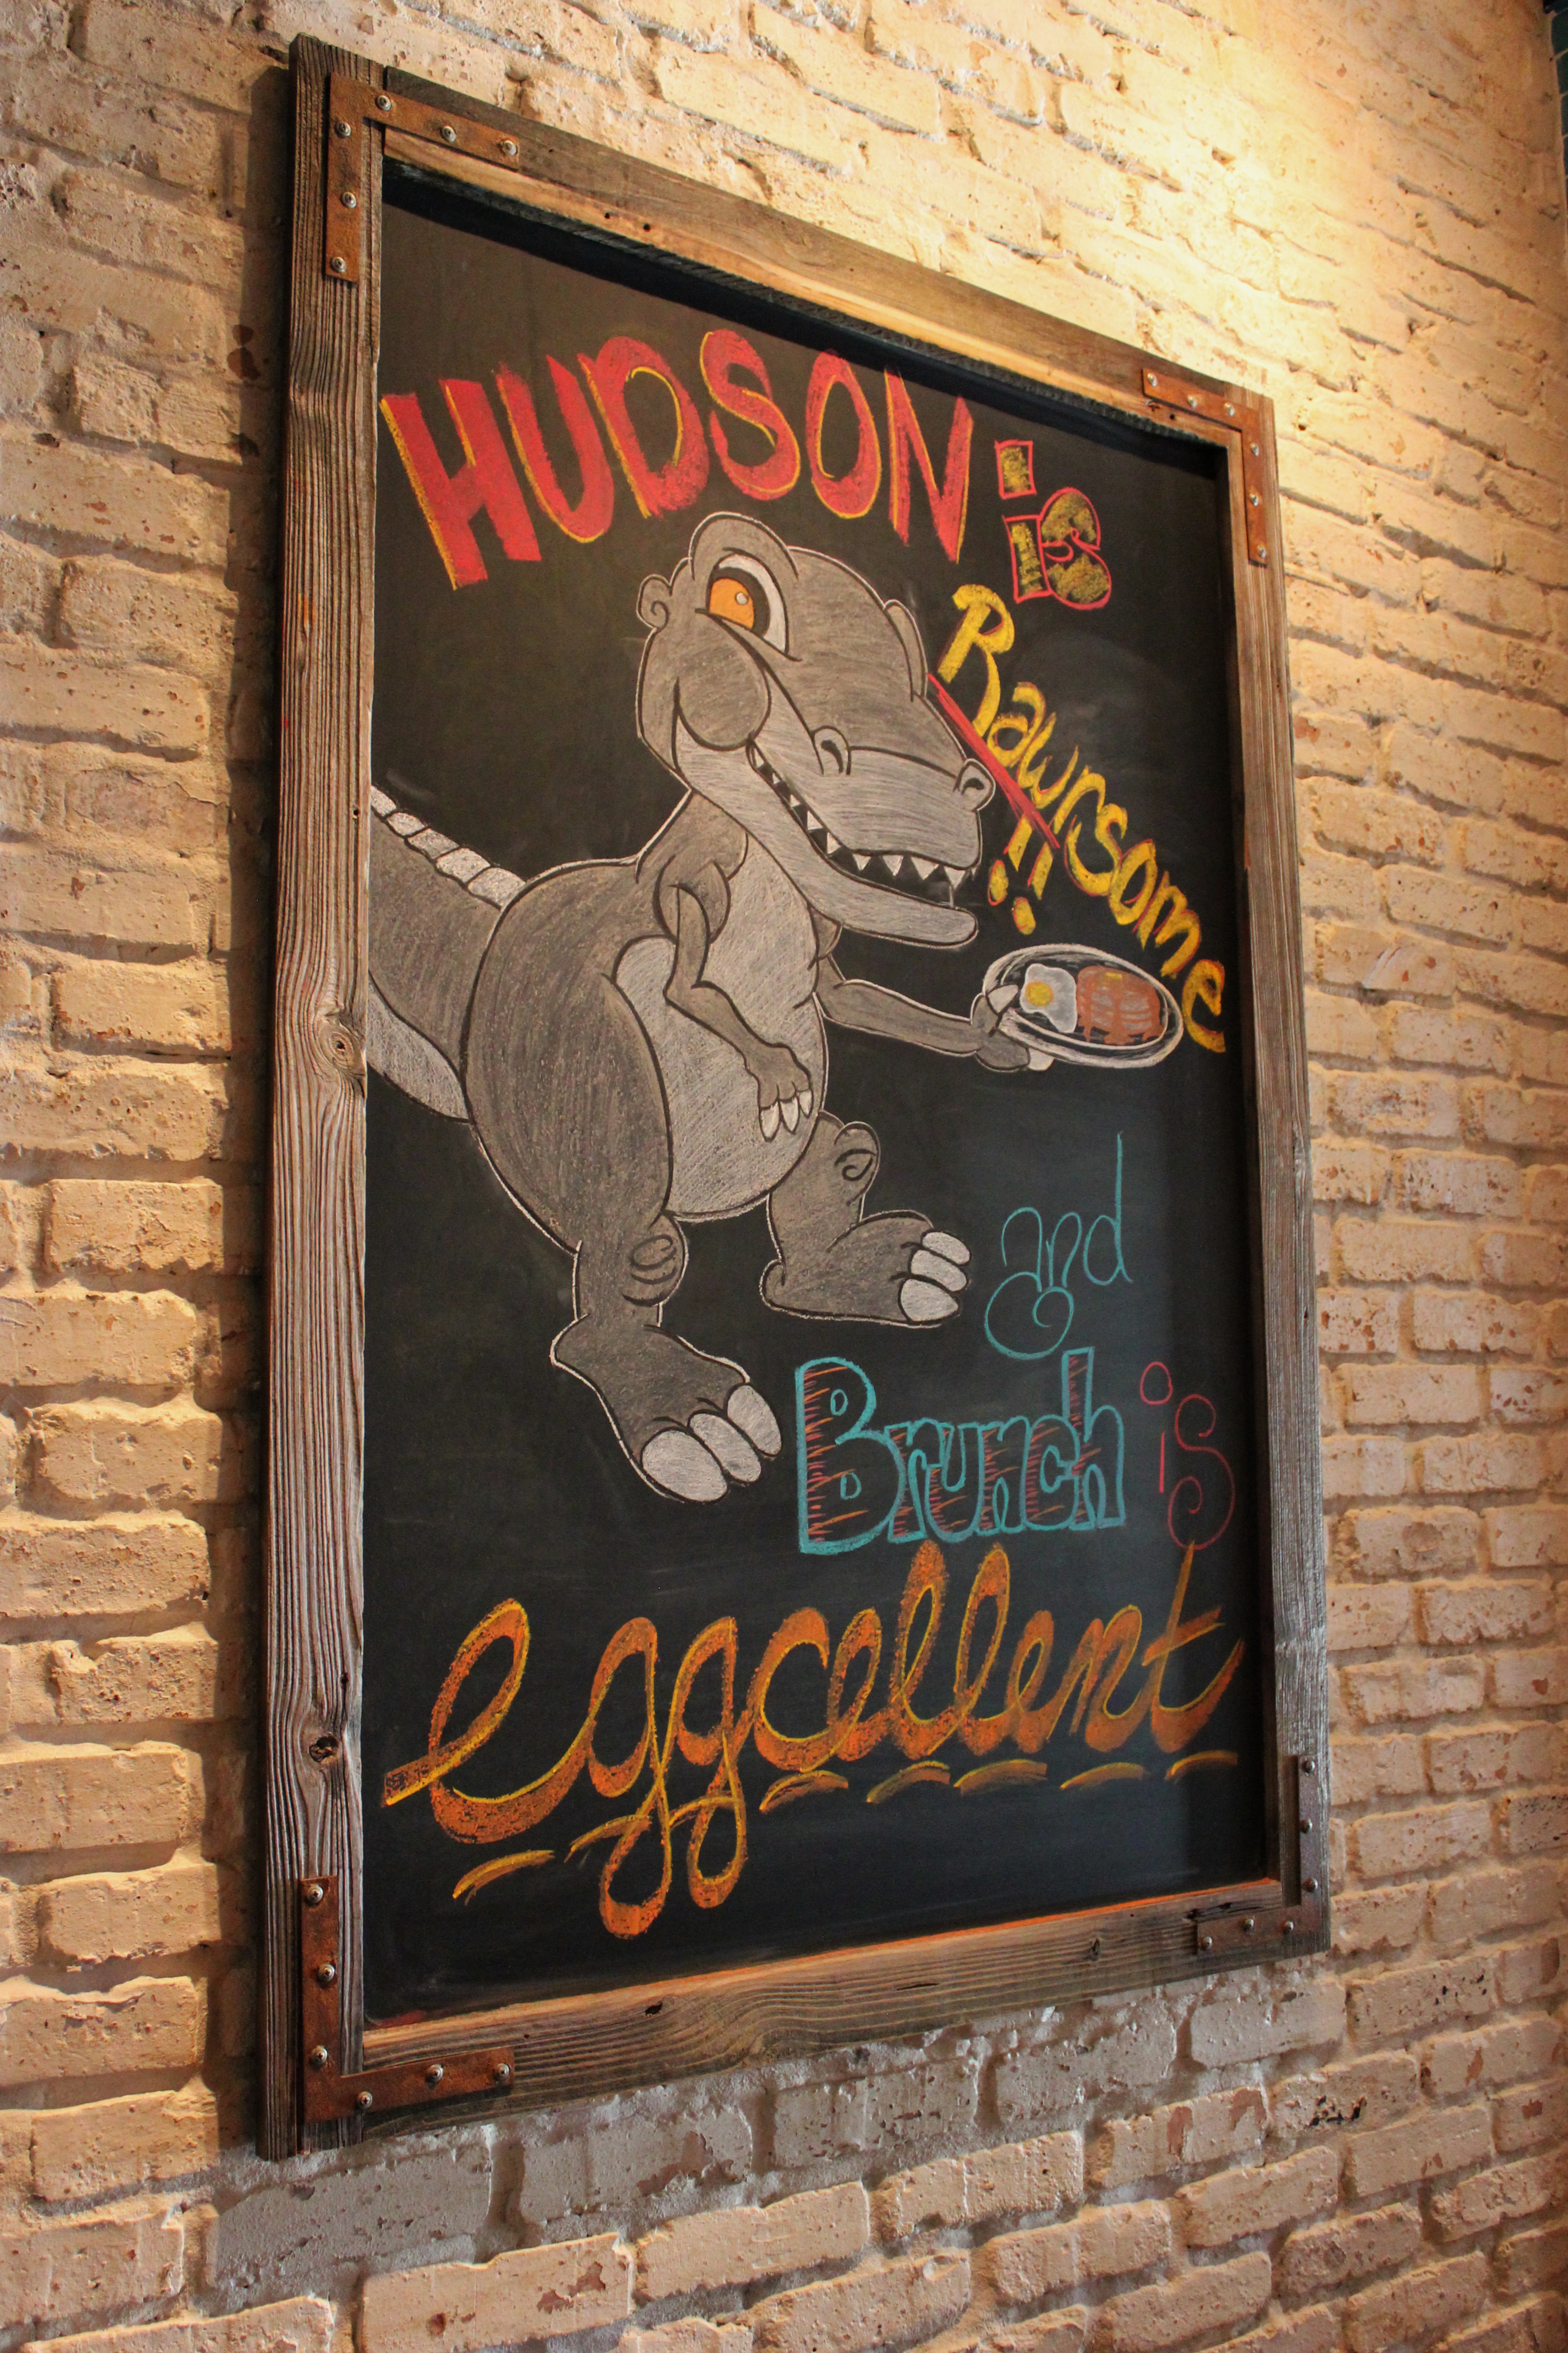 HUDSON is
Rawrsome
!!
and
Brunch is
eggcellent